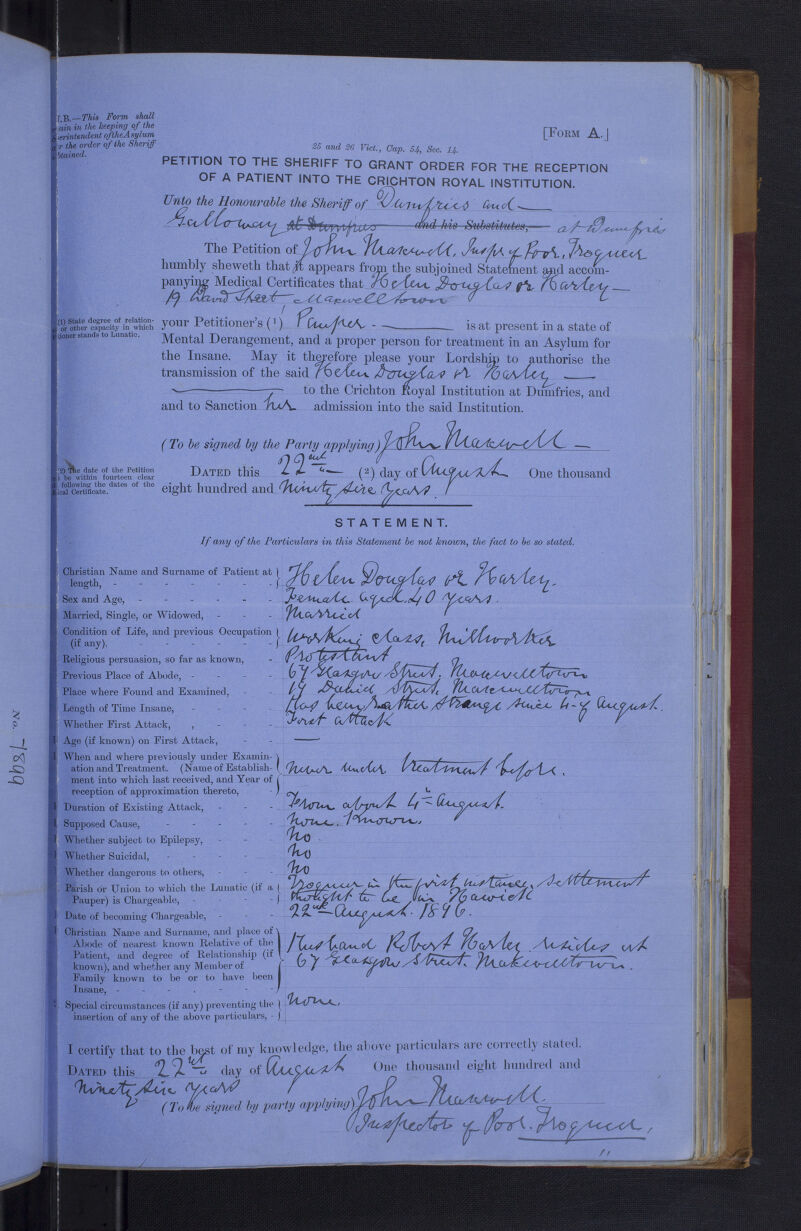 N.B.—This Form shall
remain in the keeping of the
Superintendent of the Asylum
the order of the Sheriff
obtained.
[FORM A.]
25 and 26 Vict., Cap. 54, Sec. 14.
PETITION TO THE SHERIFF TO GRANT ORDER FOR THE RECEPTION
OF A PATIENT INTO THE CRICHTON ROYAL INSTITUTION.
Unto the Honourable the Sheriff of Dumfries and
Galloway at Dumfries and his Substitutes, at Dumfries
The Petition of John Maxwell, Inspr of Poor, Troqueer
humbly sheweth that it appears from the subjoined Statement and accom-
panying Medical Certificates that Helen Douglas or Harley
19 David Street Maxwelltown
(1) State degree of relation-
or other capacity in which
Petitioner stands to Lunatic.
your Petitioner's (1) Pauper is at present in a state of
Mental Derangement, and a proper person for treatment in an Asylum for
the Insane. May it therefore please your Lordship to authorise the
transmission of the said Helen Douglas or Harley
to the Crichton Royal Institution at Dumfries, and
and to Sanction her admission into the said Institution.
(To be signed by the Party applying) John Maxwell
(2) The date of the Petition
be within fourteen clear
following the dates of the
Medical Certificate.
DATED this 22nd (2) day of August One thousand
eight hundred and Ninety six years.
STATEMENT.
If any of the Particulars in this Statement be not known, the fact to be so stated.
Christian Name and Surname of Patient at
length, - Helen Douglas or Harley.
Sex and Age, - Female aged 40 years.
Married, Single, or Widowed, - Married
Condition of Life, and previous Occupation
(if any). Working class, Millworker
Religious persuasion, so far as known, - Protestant
Previous Place of Abode, - 67 Glasgow Street, Maxwelltown
Place where Found and Examined, 19 David Street, Maxwelltown
Length of Time Insane, - Has been rather strange since 4th August.
Whether First Attack, - First attack
Age (if known) on First Attack, —
When and where previously under Examin-
ation and Treatment. (Name of Establish-
ment into which last received, and Year of
reception of approximation thereto, Never under treatment before.
Duration of Existing Attack, - From about 4th August.
Supposed Cause, - None Known.
Whether subject to Epilepsy, - No
Whether Suicidal, - No
Whether dangerous to others, - No
Parish or Union to which the Lunatic (if a
Pauper) is Chargeable, - Troqueer in the first instance, settlement
thought to be in Hawick
Date of becoming Chargeable, - 22nd August 1896.
Christian Name and Surname, and place of
Abode of nearest known Relative of the
Patient, and degree of Relationship (if
known), and whether any Member of
Family known to be or to have been
Insane, - Husband Robert Harley resides at
67 Glasgow Street, Maxwelltown.
Special circumstances (if any) preventing the
insertion of any of the above particulars, - None.
I certify that to the best of my knowledge, the above particulars are correctly stated.
DATED this 22nd day of August One thousand eight hundred and
Ninety six years
(To be signed by party applying) John Maxwell
Inspector of Poor. Troqueer.
No. 7899